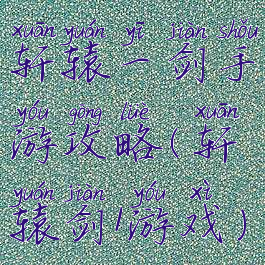 xuān yuán yī jiàn shǒu
轩辕一剑手
yóu gōng lüè xuān
游攻略(轩
yuán jiàn yóu xì
辕剑1游戏)